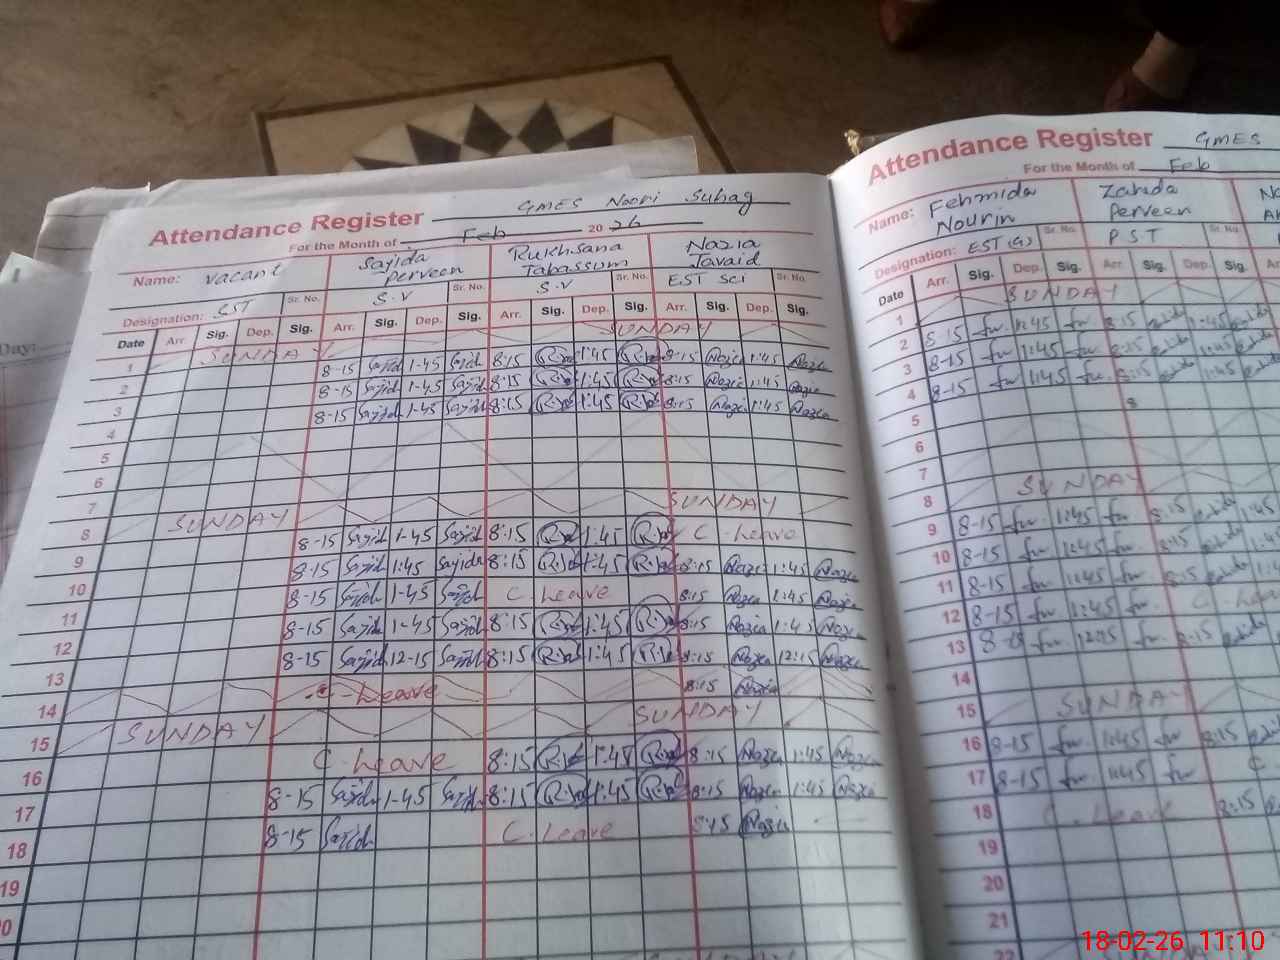 Attendance Register GMES Noori Suhag
For the Month of Feb 2026
Name: Vacant Sajida Perveen Rukhsana Tabassum Nazia Javaid
Designation: EST Sr. No. S.V Sr. No. S.V Sr. No. EST SCI Sr. No.
Date Arr. Sig. Dep. Sig. Arr. Sig. Dep. Sig. Arr. Sig. Dep. Sig. Arr. Sig. Dep. Sig.
1 SUNDAY SUNDAY
2 8-15 Sajida 1-45 Sajida 8:15 1:45 8:15 Nazia 1:45 Nazia
3 8-15 Sajida 1-45 Sajida 8:15 1:45 8:15 Nazia 1:45 Nazia
4 8-15 Sajida 1-45 Sajida 8:15 1:45 8:15 Nazia 1:45 Nazia
5
6
7
8 SUNDAY SUNDAY
9 8-15 Sajida 1-45 Sajida 8:15 1:45 C-Leave
10 8-15 Sajida 1:45 Sajida 8:15 1:45 8:15 Nazia 1:45 Nazia
11 8-15 Sajida 1-45 Sajida C. Leave 8:15 Nazia 1:45 Nazia
12 8-15 Sajida 1-45 Sajida 8:15 1:45 8:15 Nazia 1:45 Nazia
13 8-15 Sajida 12-15 Sajida 8:15 1:45 8:15 Nazia 12:15 Nazia
14 C-Leave 8:15 Nazia
15 SUNDAY SUNDAY
16 C. Leave 8:15 1:45 8:15 Nazia 1:45 Nazia
17 8-15 Sajida 1-45 Sajida 8:15 1:45 8:15 Nazia 1:45 Nazia
18 8-15 Sajida C. Leave 8:15 Nazia
19
Attendance Register GMES
For the Month of Feb
Name: Fehmida Nourin Zahida Perveen
Designation: EST (G) Sr. No. PST Sr. No.
Date Arr. Sig. Dep. Sig. Arr. Sig. Dep. Sig.
1 SUNDAY
2 8-15 1:45 8:15 1-45
3 8-15 1:45 8:15 1:45
4 8-15 1:45 8:15 1:45
5 8
6
7
8 SUNDAY
9 8-15 1:45 8:15 1:45
10 8-15 1:45 8:15
11 8-15 1:45 8:15
12 8-15 1:45 C. Leave
13 12:15 8-15
14
15 SUNDAY
16 8-15 1:45 8:15
17 8-15 1:45
18 C. Leave 8:15
19
20
21
22
Day:
18-02-26 11:10